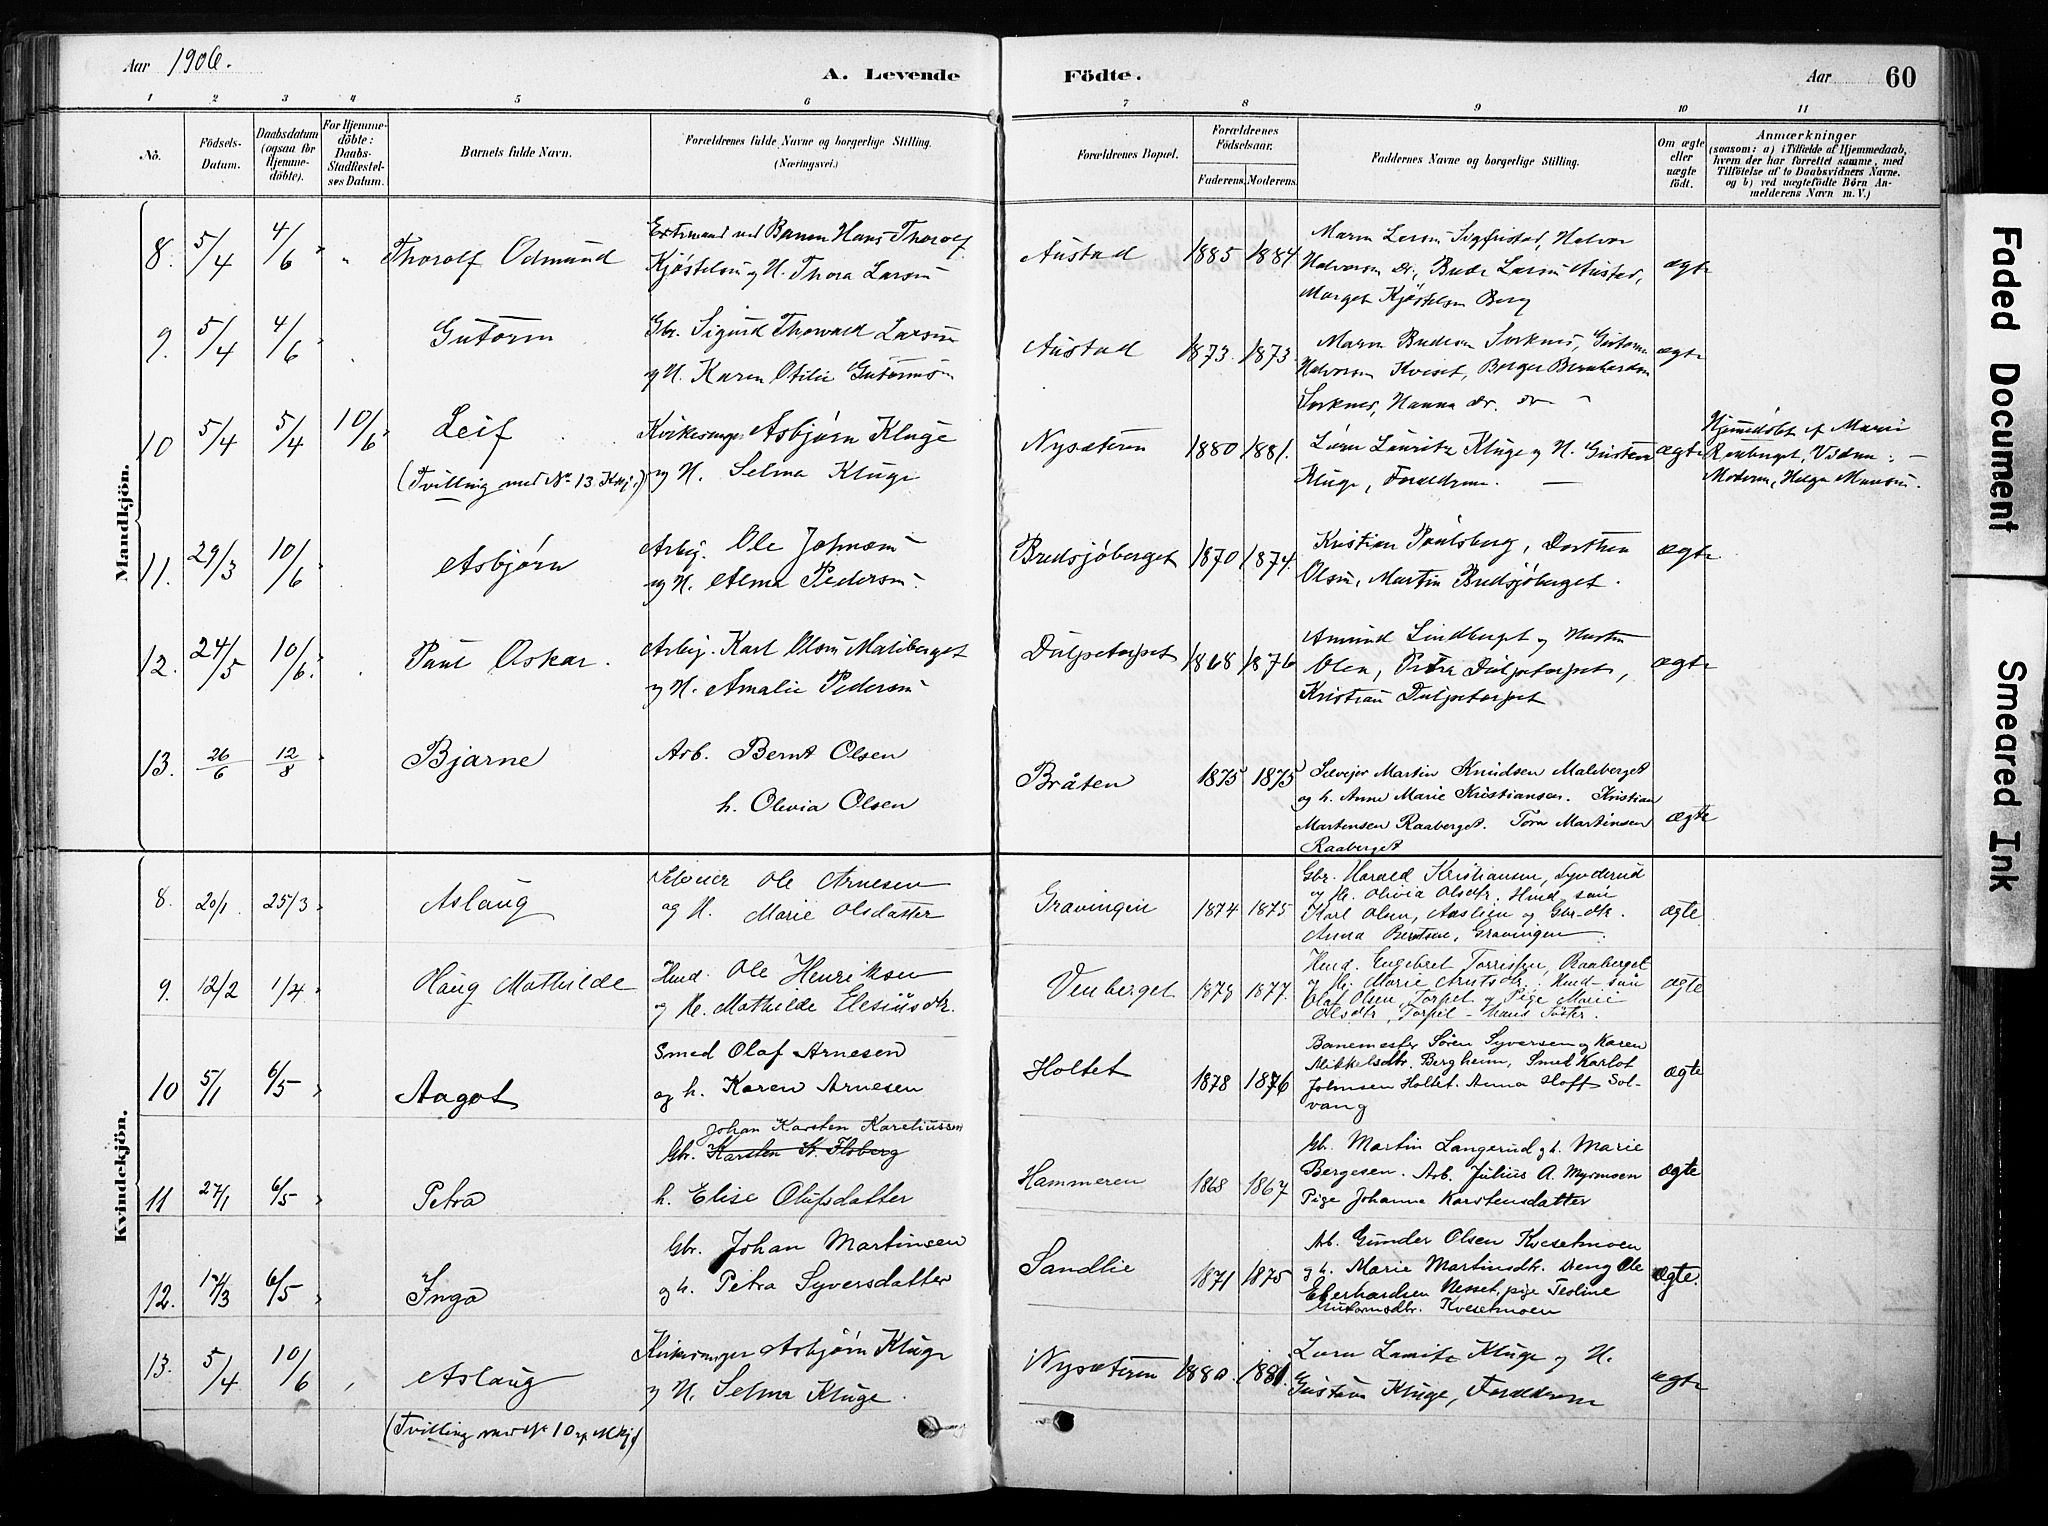 Aar 1906.
A. Levende
Födte.
Aar
60
1 2 3 4 5 6 7 8 9 10 11
No.
Födsels-
Datum.
Daabsdatum
(ogsaa for
Hjemme-
döbte).
For Hjemme-
döbte:
Daabs-
Stadfæstel-
ses Datum.
Barnets fulde Navn.
Forældrenes fulde Navne og borgerlige Stilling.
(Næringsvei.)
Forældrenes Bopæl.
Forældrenes
Födselsaar.
Faderens. Moderens.
Faddernes Navne og borgerlige Stilling.
Om ægte
eller
uægte
födt.
Anmærkninger
(saasom: a) i Tilfælde af Hjemmedaab,
hvem der har forrettet samme, med
Tilföielse af to Daabsvidners Navne.
og b) ved uægtefödte Börn An-
melderens Navn m. V.)
Mandkjön.
8. 5/4 4/6 " Thorolf Odmund
Banen Hans Thorolf
Kjöstelsen og H. Thora Larsen
Austad 1885 1884
Halvor
Larsen Austad,
Marget Kjöstelsen Berg
ægte
9. 5/4 4/6 Gutorm
Gbr. Sigurd Thorvald Larsen
og H. Karen Otilie Gutormsen
Austad 1873. 1873.
Maren Budersen Sorknes, Gutorm
Halvorsen Kveset, Borger Bernhardsen
Sorknes, Hanna do. do
ægte
10 5/4 5/4 10/6 Leif
(Tvilling med No 13 Kkj.)
Kirkesanger Asbjørn Kluge
og H. Selma Kluge
Nysæteren 1880 1881.
Lærer Lauritz Kluge og H. Gustava
Kluge, Forældrene. —
ægte
Hjemmedöbt af Marie
Raaberget, Vidner: —
Moderen, Helga Monsen.
11. 29/3 10/6 Asbjørn
Arbej. Ole Johnsen
og H. Alma Pedersen.
Bredsjöberget 1870 1874.
Kristian Paulsberg, Dorthea
Olsen, Martin Bredsjöberget.
ægte
12. 24/5 10/6. Paul Oskar.
Arbej. Karl Olsen Malsberget
og H. Amalie Pedersen
Dulpetorpet 1868 1876
Amund Lindberget og Hustru
Olea, Petra Dulpetorpet,
Kristian Dulpetorpet
ægte
13. 26/6 12/8 Bjarne
Arb. Bernt Olsen
h. Olivia Olsen
Bråten 1875 1875
Selvejer Martin Knudsen Malsberget
og h. Anne Marie Kristiansen. Kristian
Martensen Raaberget. Tora Martinsen
Raaberget
ægte
Kvindekjön.
8. 20/1. 25/3 Aslaug
Selveier Ole Arnesen
og H. Marie Olsdatter
Gravingen 1874 1875
Gbr. Harald Kristiansen, Synderud
og H. Olivia Olsdtr. Husd. søn
Karl Olsen, Aaslien og Gbr-dtr.
Anna Berntsen, Gravingen.
ægte
9. 12/2 1/4 Haug Mathilde
Husd. Ole Henriksen
og H. Mathilde Elesiusdtr.
Venberget 1878 1877.
Husd. Engebret Torrissen, Raaberget
og H. Marie Arntsdtr. Husd søn
Olaf Olsen, Torpet og Pige Marie
Olsdtr, Torpet – hans Söster.
ægte
10 5/1 6/5 Aagot
Smed Olaf Arnesen
og h. Karen Arnesen
Holtet 1878 1876
Banemester Sören Syversen og Karen
Mikkelsdtr. Bergheim, Smed Karlot
Johnsen Holtet. Anna Hoff Sol-
vang
ægte
11 27/1 6/5 Petra
Johan Karsten Kareliussen
Gbr. Karsten K. Floberg
h. Elise Olufsdatter
Hammeren 1868 1867
Gb. Martin Langerud og h. Marie
Bergesen. Arb. Julius A. Myrmoen
Pige Johanne Karstensdatter
ægte
12. 12/3 6/5 Inga
Gbr. Johan Martinsen
og h. Petra Syversdatter
Sandlie 1871 1875
Arb. Gunder Olsen Kvesetmoen
og h. Marie Martinsdtr. Dreng Ole
Eberhardsen Nesset, pige Teoline
Gutormsdtr. Kvesetmoen
ægte.
13. 5/4 10/6 Aslaug
(Tvilling med No 10 af Mkj.)
Kirkesanger Asbjørn Kluge
og H. Selma Kluge.
Nysæteren 1880. 1881.
Lærer Lauritz Kluge og H.
Gustava Kluge, Forældrene
ægte
Faded Document
Smeared Ink